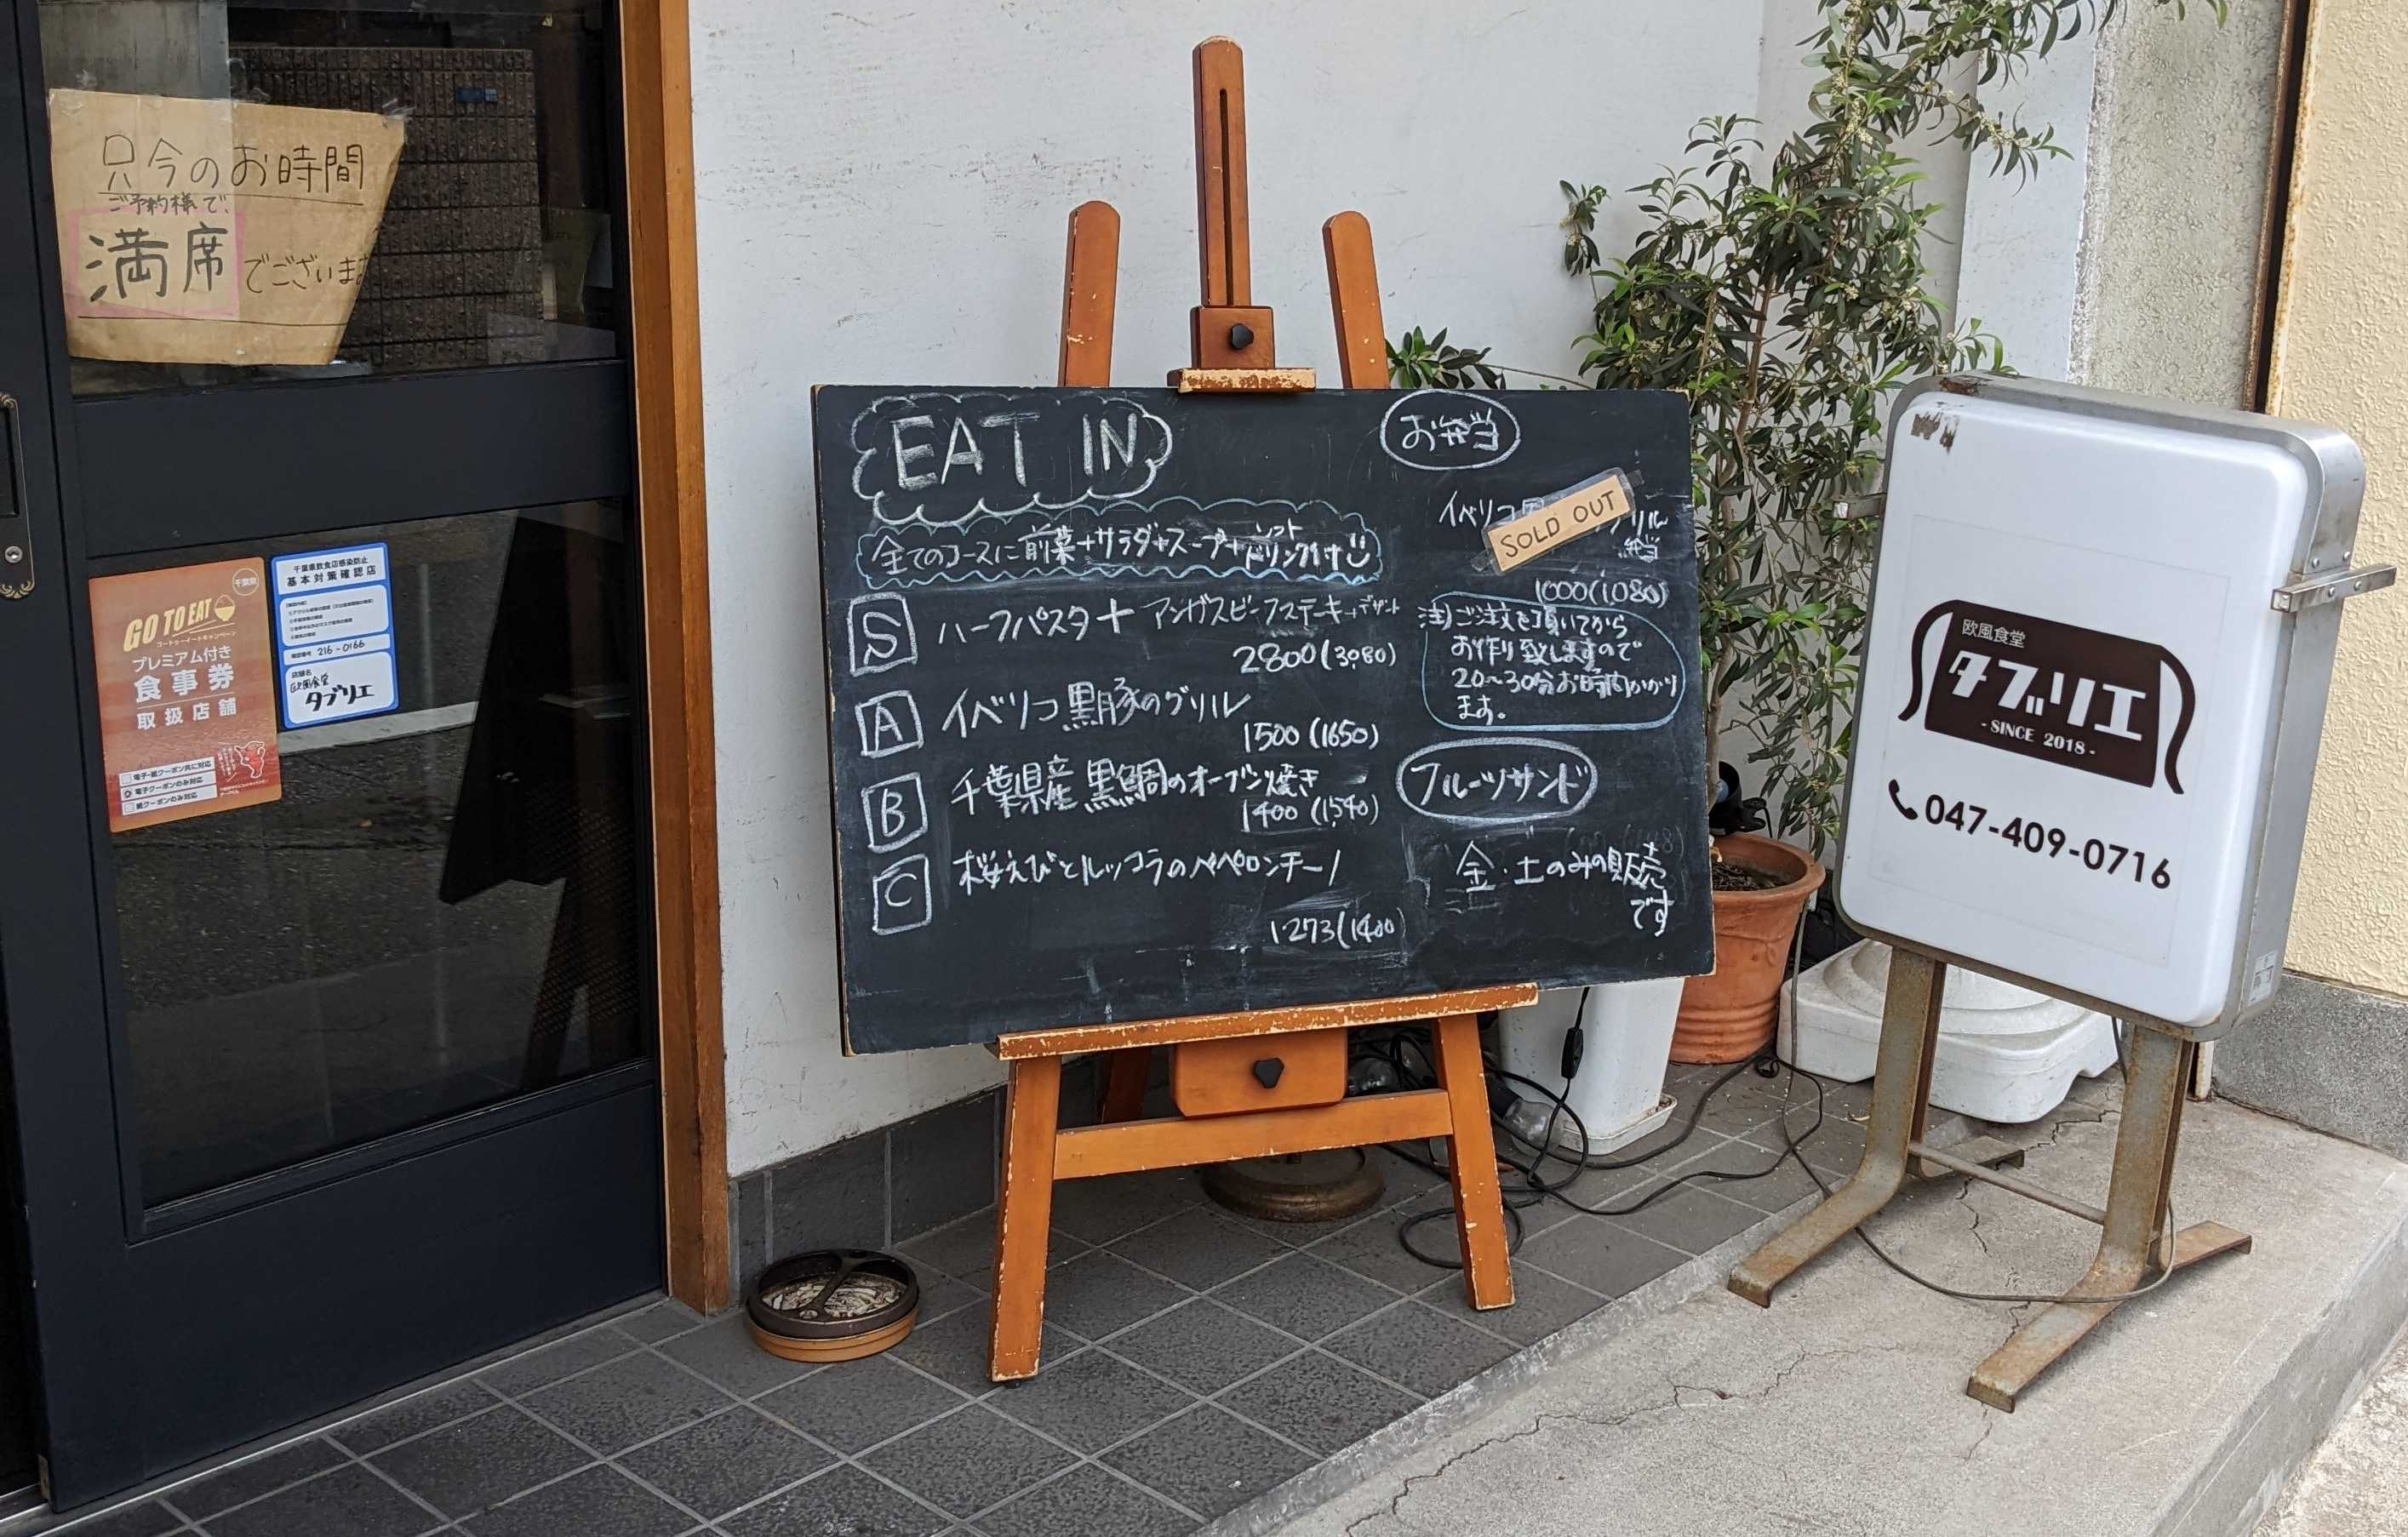 只今のお時間
ご予約様で、
満席でございま
GO TO EAT
ゴートゥーイートキャンペーン
千葉県
プレミアム付き
食事券
取扱店舗
電子・紙クーポン共に対応
電子クーポンのみ対応
紙クーポンのみ対応
千葉県飲食店感染防止
基本対策確認店
確認番号 216-0166
店舗名
欧風食堂
タブリエ
EAT IN
全てのコースに前菜+サラダ+スープ+ソフトドリンク付
S ハーフパスタ+アンガスビーフステーキ+デザート
2800(3,080)
A イベリコ黒豚のグリル
1500(1650)
B 千葉県産黒鯛のオーブン焼き
1400(1,540)
C 桜えびとルッコラのペペロンチーノ
1273(1400)
お弁当
イベリコ
リル
弁当
SOLD OUT
1000(1,080)
注)ご注文を頂いてから
お作り致しますので
20〜30分お時間かかり
ます。
フルーツサンド
金・土のみの販売
です
欧風食堂
タブリエ
- SINCE 2018 -
047-409-0716